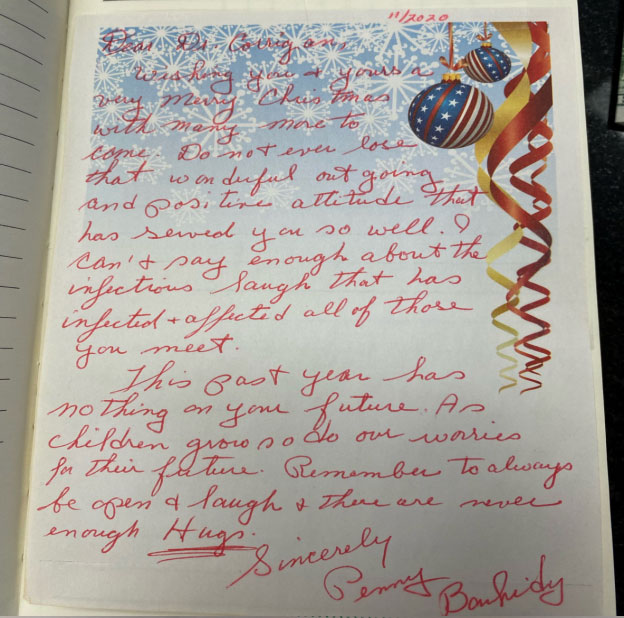 11/2020
Dear Dr. Corrigan,
Wishing you & yours a
very Merry Christmas
with many more to
come. Do not ever lose
that wonderful out going
and positive attitude that
has served you so well. I
can't say enough about the
infectious laugh that has
infected + affected all of those
you meet.
This past year has
nothing on your future. As
children grow so do our worries
for their future. Remember to always
be open & laugh & there are never
enough Hugs.
Sincerely
Penny